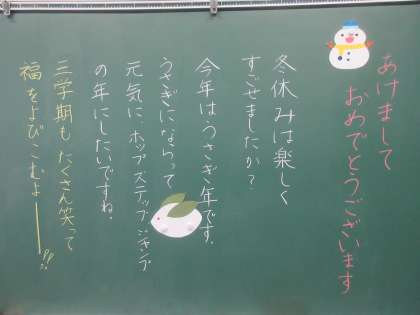 あけまして
おめでとうございます
冬休みは楽しく
すごせましたか?
今年はうさぎ年です。
うさぎにならって
元気に、ホップステップジャンプ
の年にしたいですね。
三学期もたくさん笑って
福をよびこむよー!!